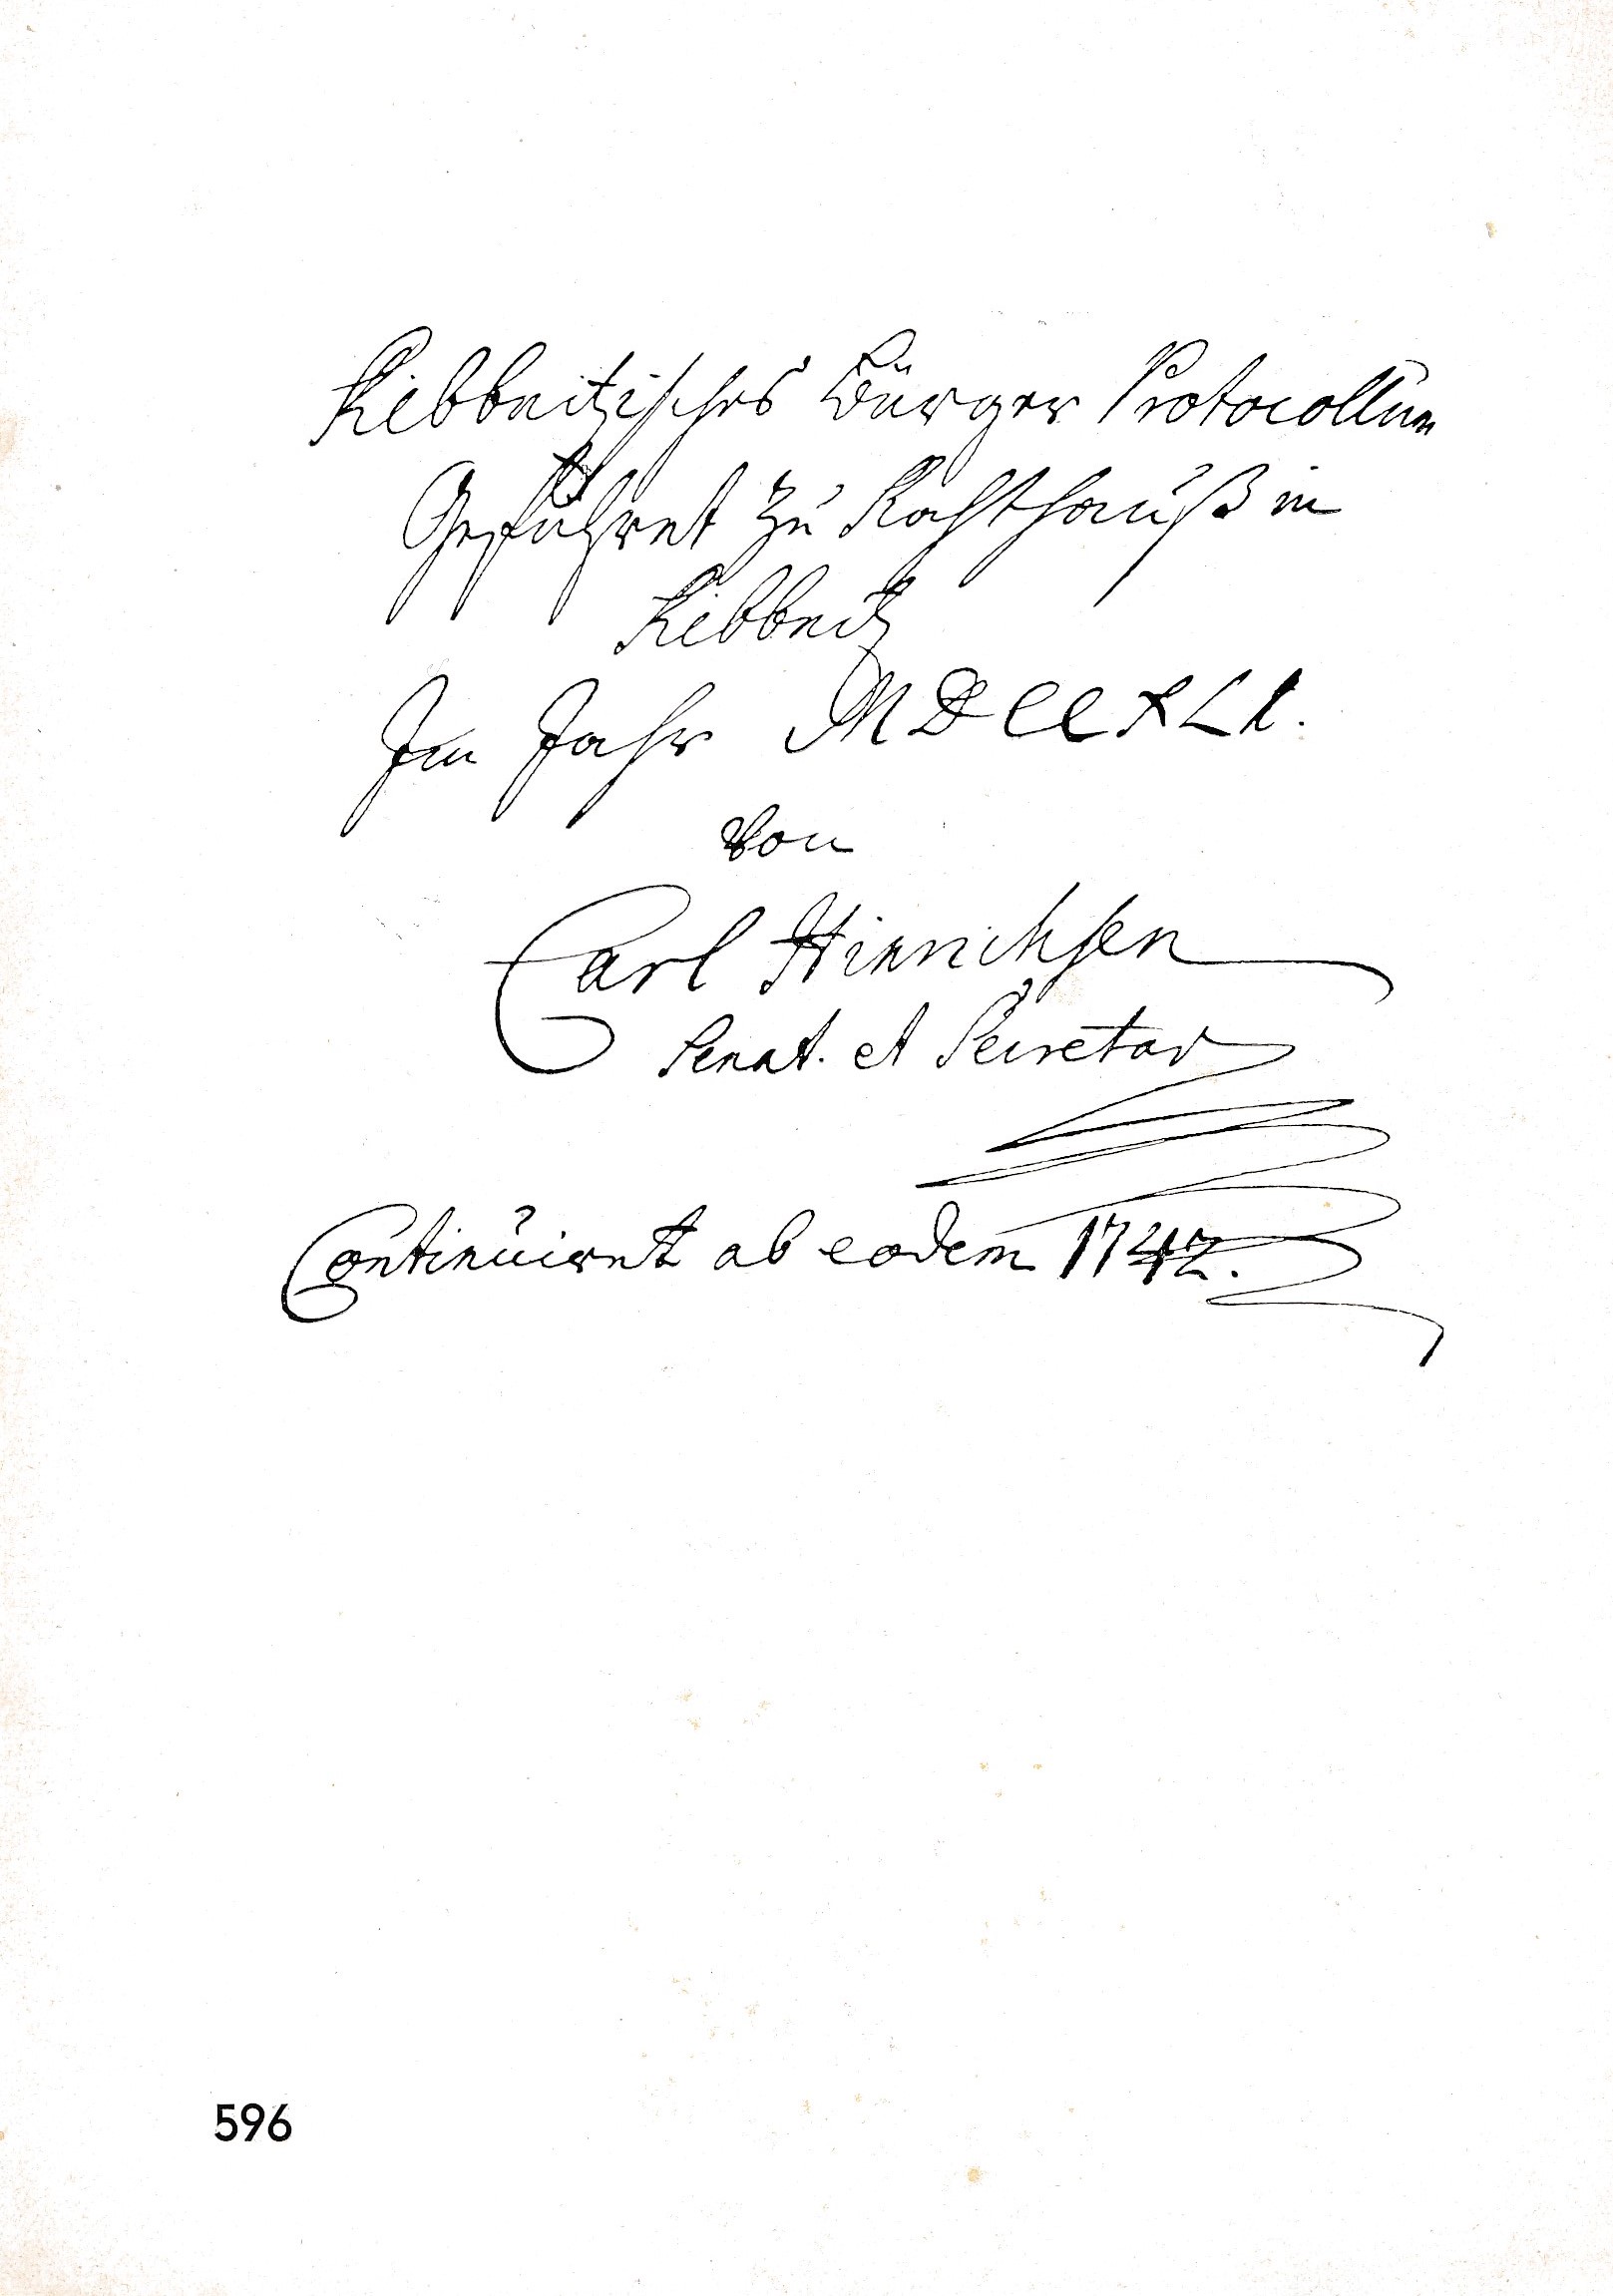 Ribbnitzisches Bürger Protocollum
Geführet zu Rahthauß in
Ribbnitz
Im Jahr MDCCXLI.
Von
Carl Hinrichsen
Senat. et Secretar
Continuiret ab eodem 1742.
596